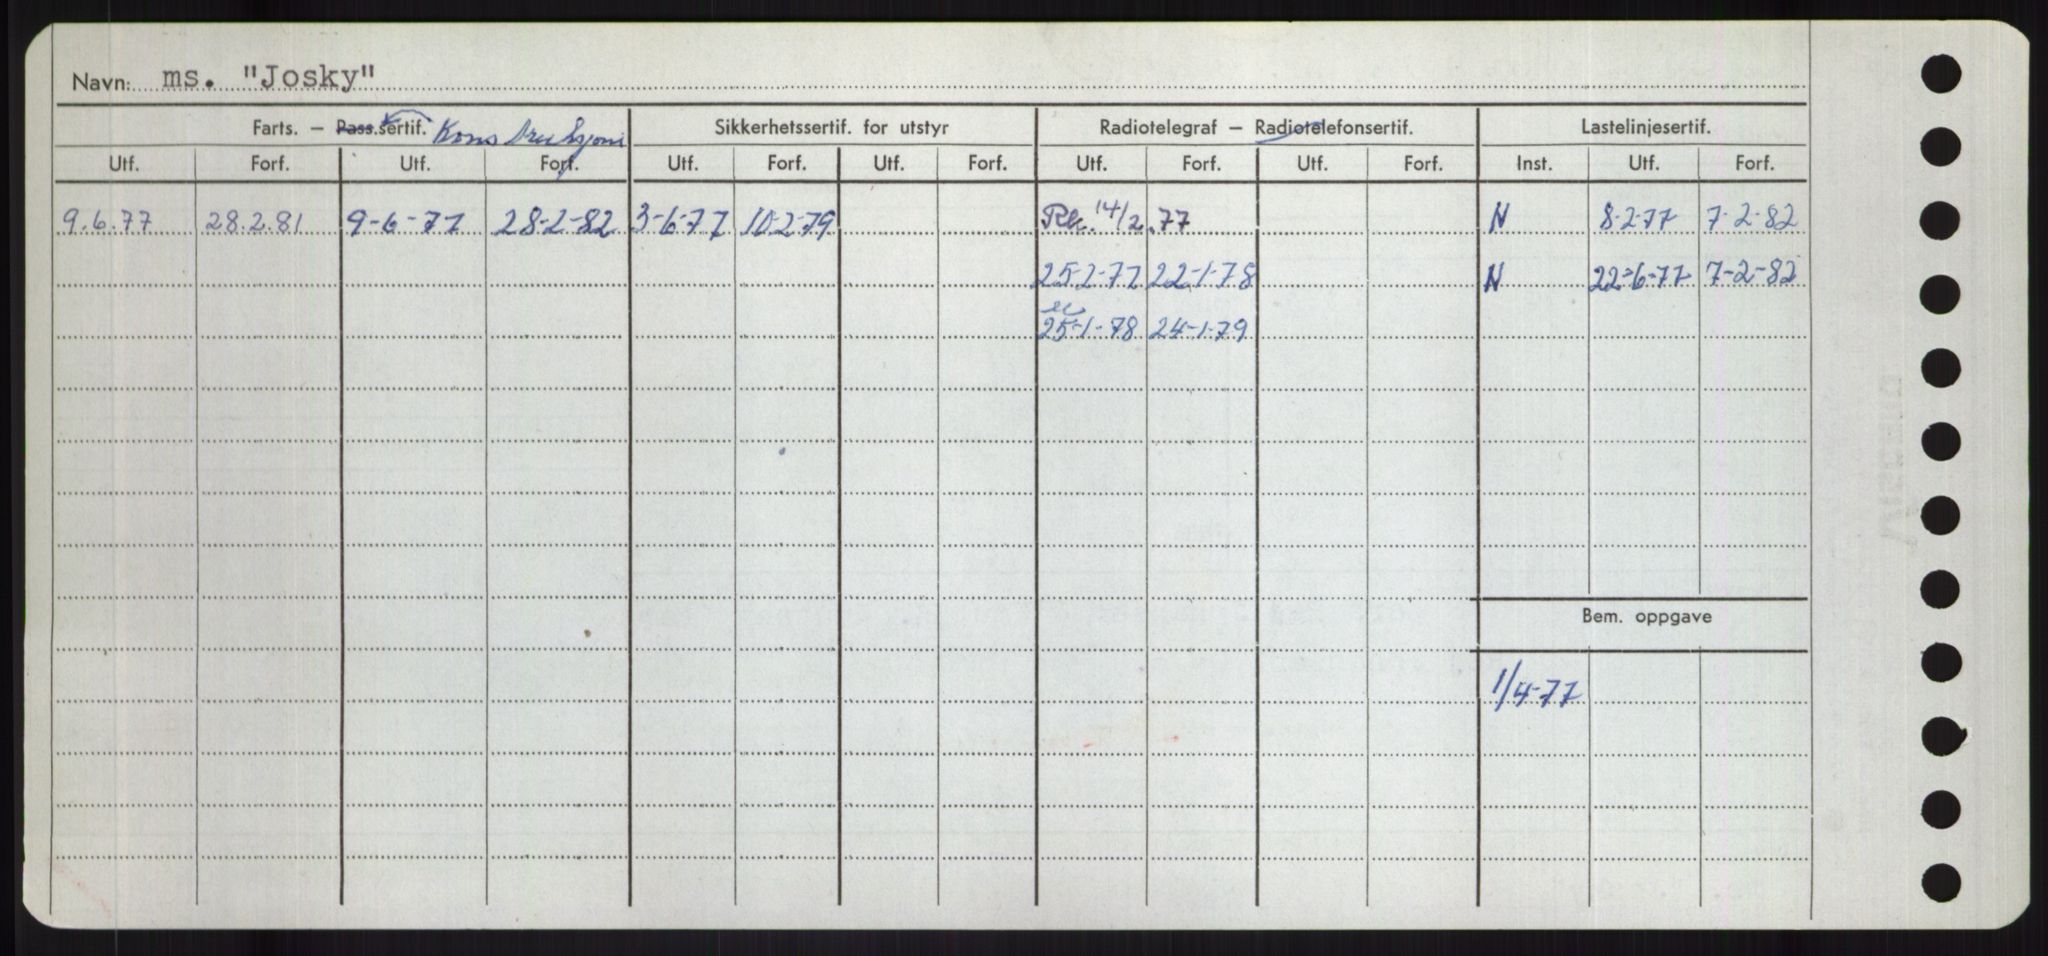 Navn: ms. "Josky"
Farts. – Pass.sertif. Konstruksjons Sikkerhetssertif. for utstyr Radiotelegraf – Radiotelefonsertif. Lastelinjesertif.
Utf. Forf. Utf. Forf. Utf. Forf. Utf. Forf. Utf. Forf. Utf. Forf. Inst. Utf. Forf.
9.6.77 28.2.81 9-6-77 28-2-82 3-6-77 10-2-79 14/2.77 N 8-2-77 7-2-82
25-2-77 22-1-78 N 22-6-77 7-2-82
25-1-78 24-1-79
Bem. oppgave
1/4-77